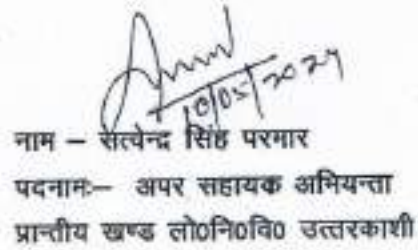 10/05/2024
नाम – सत्येन्द्र सिंह परमार
पदनामः– अपर सहायक अभियन्ता
प्रान्तीय खण्ड लो0नि0वि0 उत्तरकाशी